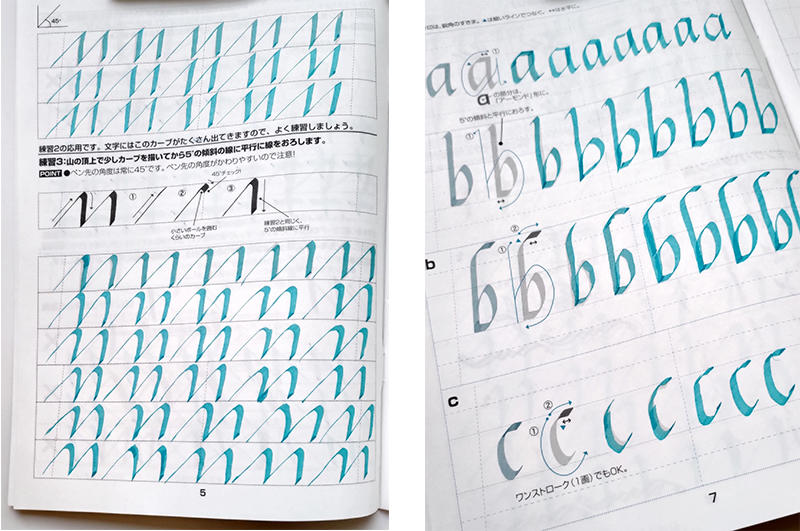 45°
練習2の応用です。文字にはこのカーブがたくさん出てきますので、よく練習しましょう。
練習3:山の頂上で少しカーブを描いてから5°の傾斜の線に平行に線をおろします。
POINT ●ペン先の角度は常に45°です。ペン先の角度がかわりやすいので注意!
45°チェック!
① ② ③
小さいボールを囲む
くらいのカーブ
練習2と同じく、
5°の傾斜線に平行
5
印は、鋭角のすきま。▲は細いラインでつなぐ。↔は水平に。
①
a a a a a a a a a a
aの部分は、
「アーモンド」形に。
5°の傾斜と平行におろす。
①
b b b b b b b b b b
① ②
b
b b b b b b b b b
c
① ②
c c c c c c c
ワンストローク(1画)でもOK。
7